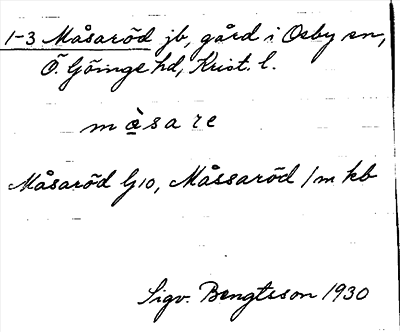 1-3 Måsaröd jb, gård i Osby sn,
Ö. Göinge hd, Krist. l.
m å̀ s a r e
Måsaröd G10, Måssaröd /m kb
Sigv. Bengtsson 1930